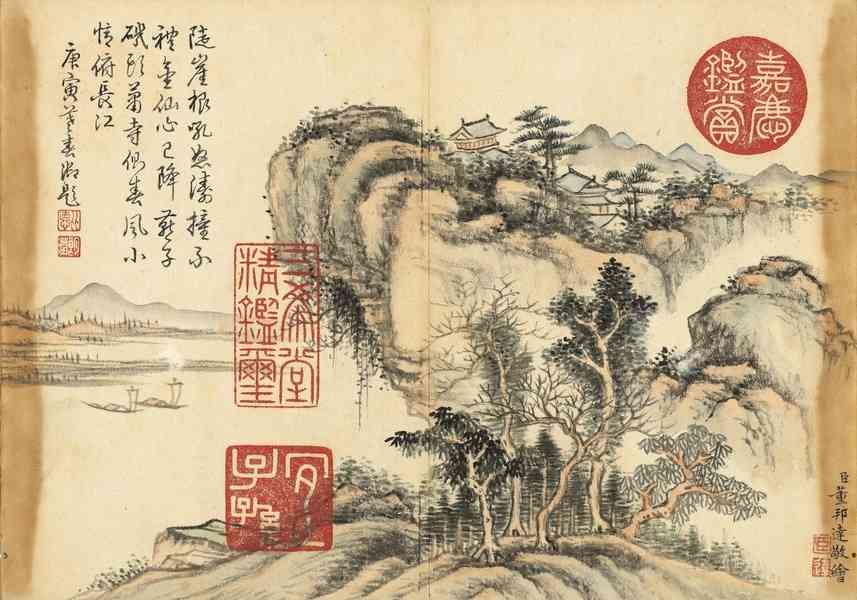 陡崖根吼怒濤撞不
禮金仙心已降燕子
磯頭蕭寺側春風小
憩俯長江
庚寅暮春御題
嘉慶
鑑賞
三希堂
精鑑璽
宜
子孫
臣董邦達敬繪